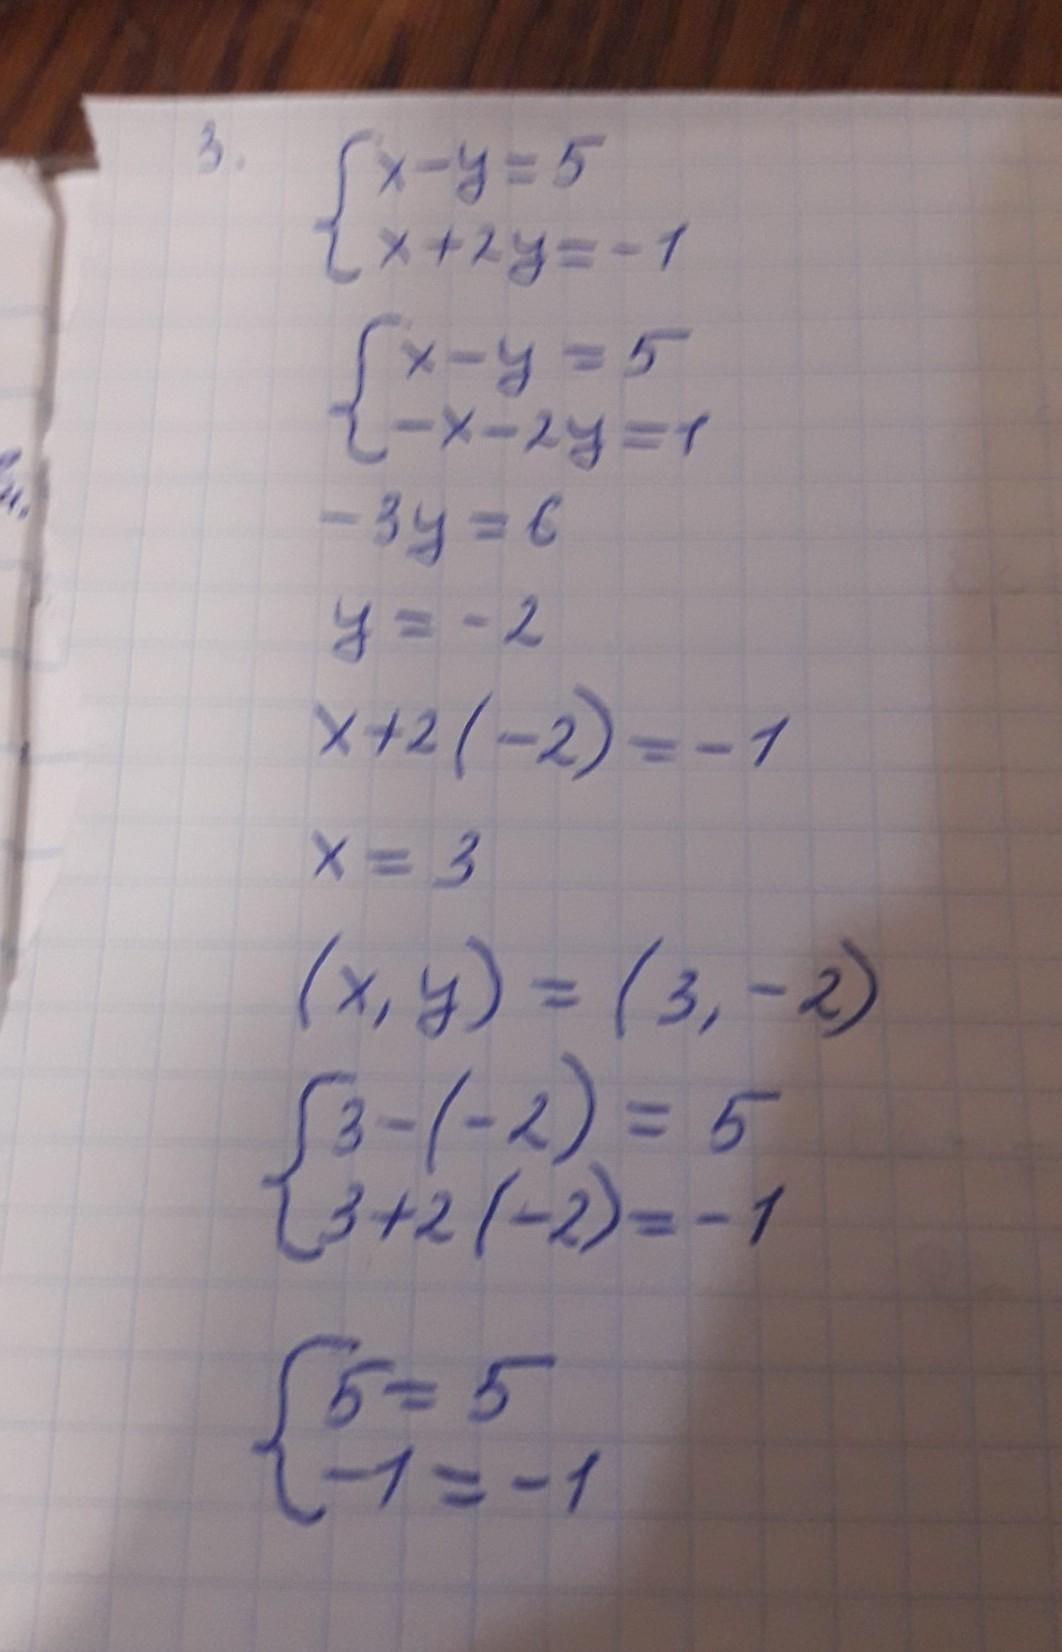 3. { x-y=5
x+2y=-1
{ x-y=5
-x-2y=1
-3y=6
y=-2
x+2(-2)=-1
x=3
(x, y) = (3, -2)
{ 3-(-2)=5
3+2(-2)=-1
{ 5=5
-1=-1